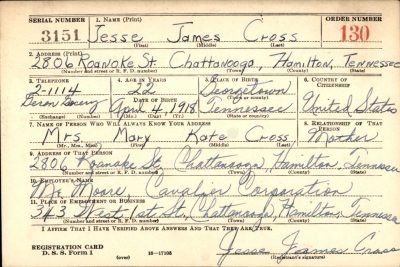 SERIAL NUMBER 1. NAME (Print) ORDER NUMBER
3151 Jesse James Cross 130
(First) (Middle) (Last)
2. ADDRESS (Print)
2806 Roanoke St. Chattanooga, Hamilton, Tennessee
(Number and street or R. F. D. number) (Town) (County) (State)
3. TELEPHONE 4. AGE IN YEARS 5. PLACE OF BIRTH 6. COUNTRY OF CITIZENSHIP
2-1114 22 Georgetown
DATE OF BIRTH (Town or county)
April 4, 1918 Tennessee United States
(Exchange) (Number) (Mo.) (Day) (Yr.) (State or country)
7. NAME OF PERSON WHO WILL ALWAYS KNOW YOUR ADDRESS 8. RELATIONSHIP OF THAT PERSON
Mrs. Mary Kate Cross Mother
(Mr., Mrs., Miss) (First) (Middle) (Last)
9. ADDRESS OF THAT PERSON
2806 Roanoke St, Chattanooga, Hamilton, Tennessee
(Number and street or R. F. D. number) (Town) (County) (State)
10. EMPLOYER'S NAME
Moore, Cavalier Corporation
11. PLACE OF EMPLOYMENT OR BUSINESS
West 1st St, Chattanooga, Hamilton, Tennessee
(Number and street or R. F. D. number) (Town) (County) (State)
I AFFIRM THAT I HAVE VERIFIED ABOVE ANSWERS AND THAT THEY ARE TRUE.
REGISTRATION CARD
D. S. S. FORM 1 Jesse James Cross
(Registrant's signature)